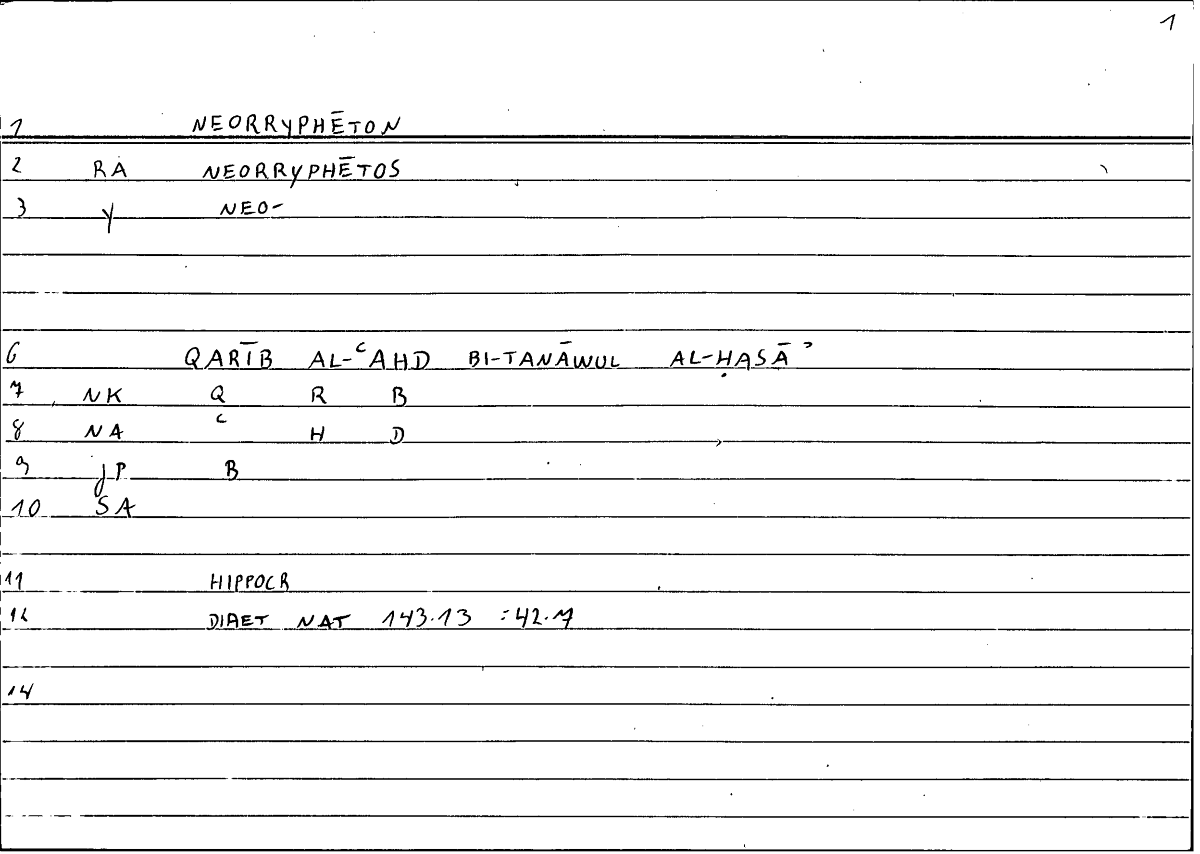 1
1 NEORRYPHĒTON
2 RA NEORRYPHĒTOS
3 Y NEO-
6 QARĪB AL-ʿAHD BI-TANĀWUL AL-ḤASĀʾ
7 NK Q R B
8 NA ʿ H D
9 JP B
10 SA
11 HIPPOCR
12 DIAET NAT 143.13 :42.7
14